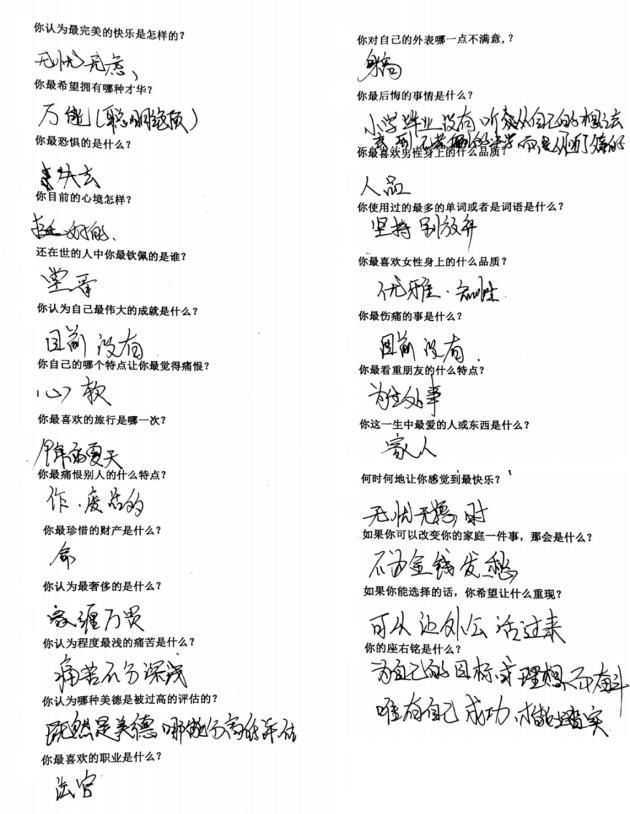 你认为最完美的快乐是怎样的？
无忧无虑，
你最希望拥有哪种才华？
万能（聪明绝顶）
你最恐惧的是什么？
失去
你目前的心境怎样？
挺好的、
还在世的人中你最钦佩的是谁？
你认为自己最伟大的成就是什么？
目前没有
你自己的哪个特点让你最觉得痛恨？
心软
你最喜欢的旅行是哪一次？
夏天
你最痛恨别人的什么特点？
作、废话的
你最珍惜的财产是什么？
命
你认为最奢侈的是什么？
家缠万贯
你认为程度最浅的痛苦是什么？
痛苦不分深浅
你认为哪种美德是被过高的评估的？
既然是美德哪能分高低评估
你最喜欢的职业是什么？
法官
你对自己的外表哪一点不满意，？
身高
你最后悔的事情是什么？
小学毕业没有听从自己的想法去
你最喜欢男性身上的什么品质？
人品
你使用过的最多的单词或者是词语是什么？
坚持 别放弃
你最喜欢女性身上的什么品质？
优雅、知性
你最伤痛的事是什么？
目前没有.
你最看重朋友的什么特点？
为人处事
你这一生中最爱的人或东西是什么？
家人
何时何地让你感觉到最快乐？
无忧无虑时
如果你可以改变你的家庭一件事，那会是什么？
不为金钱发愁
如果你能选择的话，你希望让什么重现？
可以让外公活过来
你的座右铭是什么？
为自己的目标或理想而奋斗
唯有自己成功、才能踏实